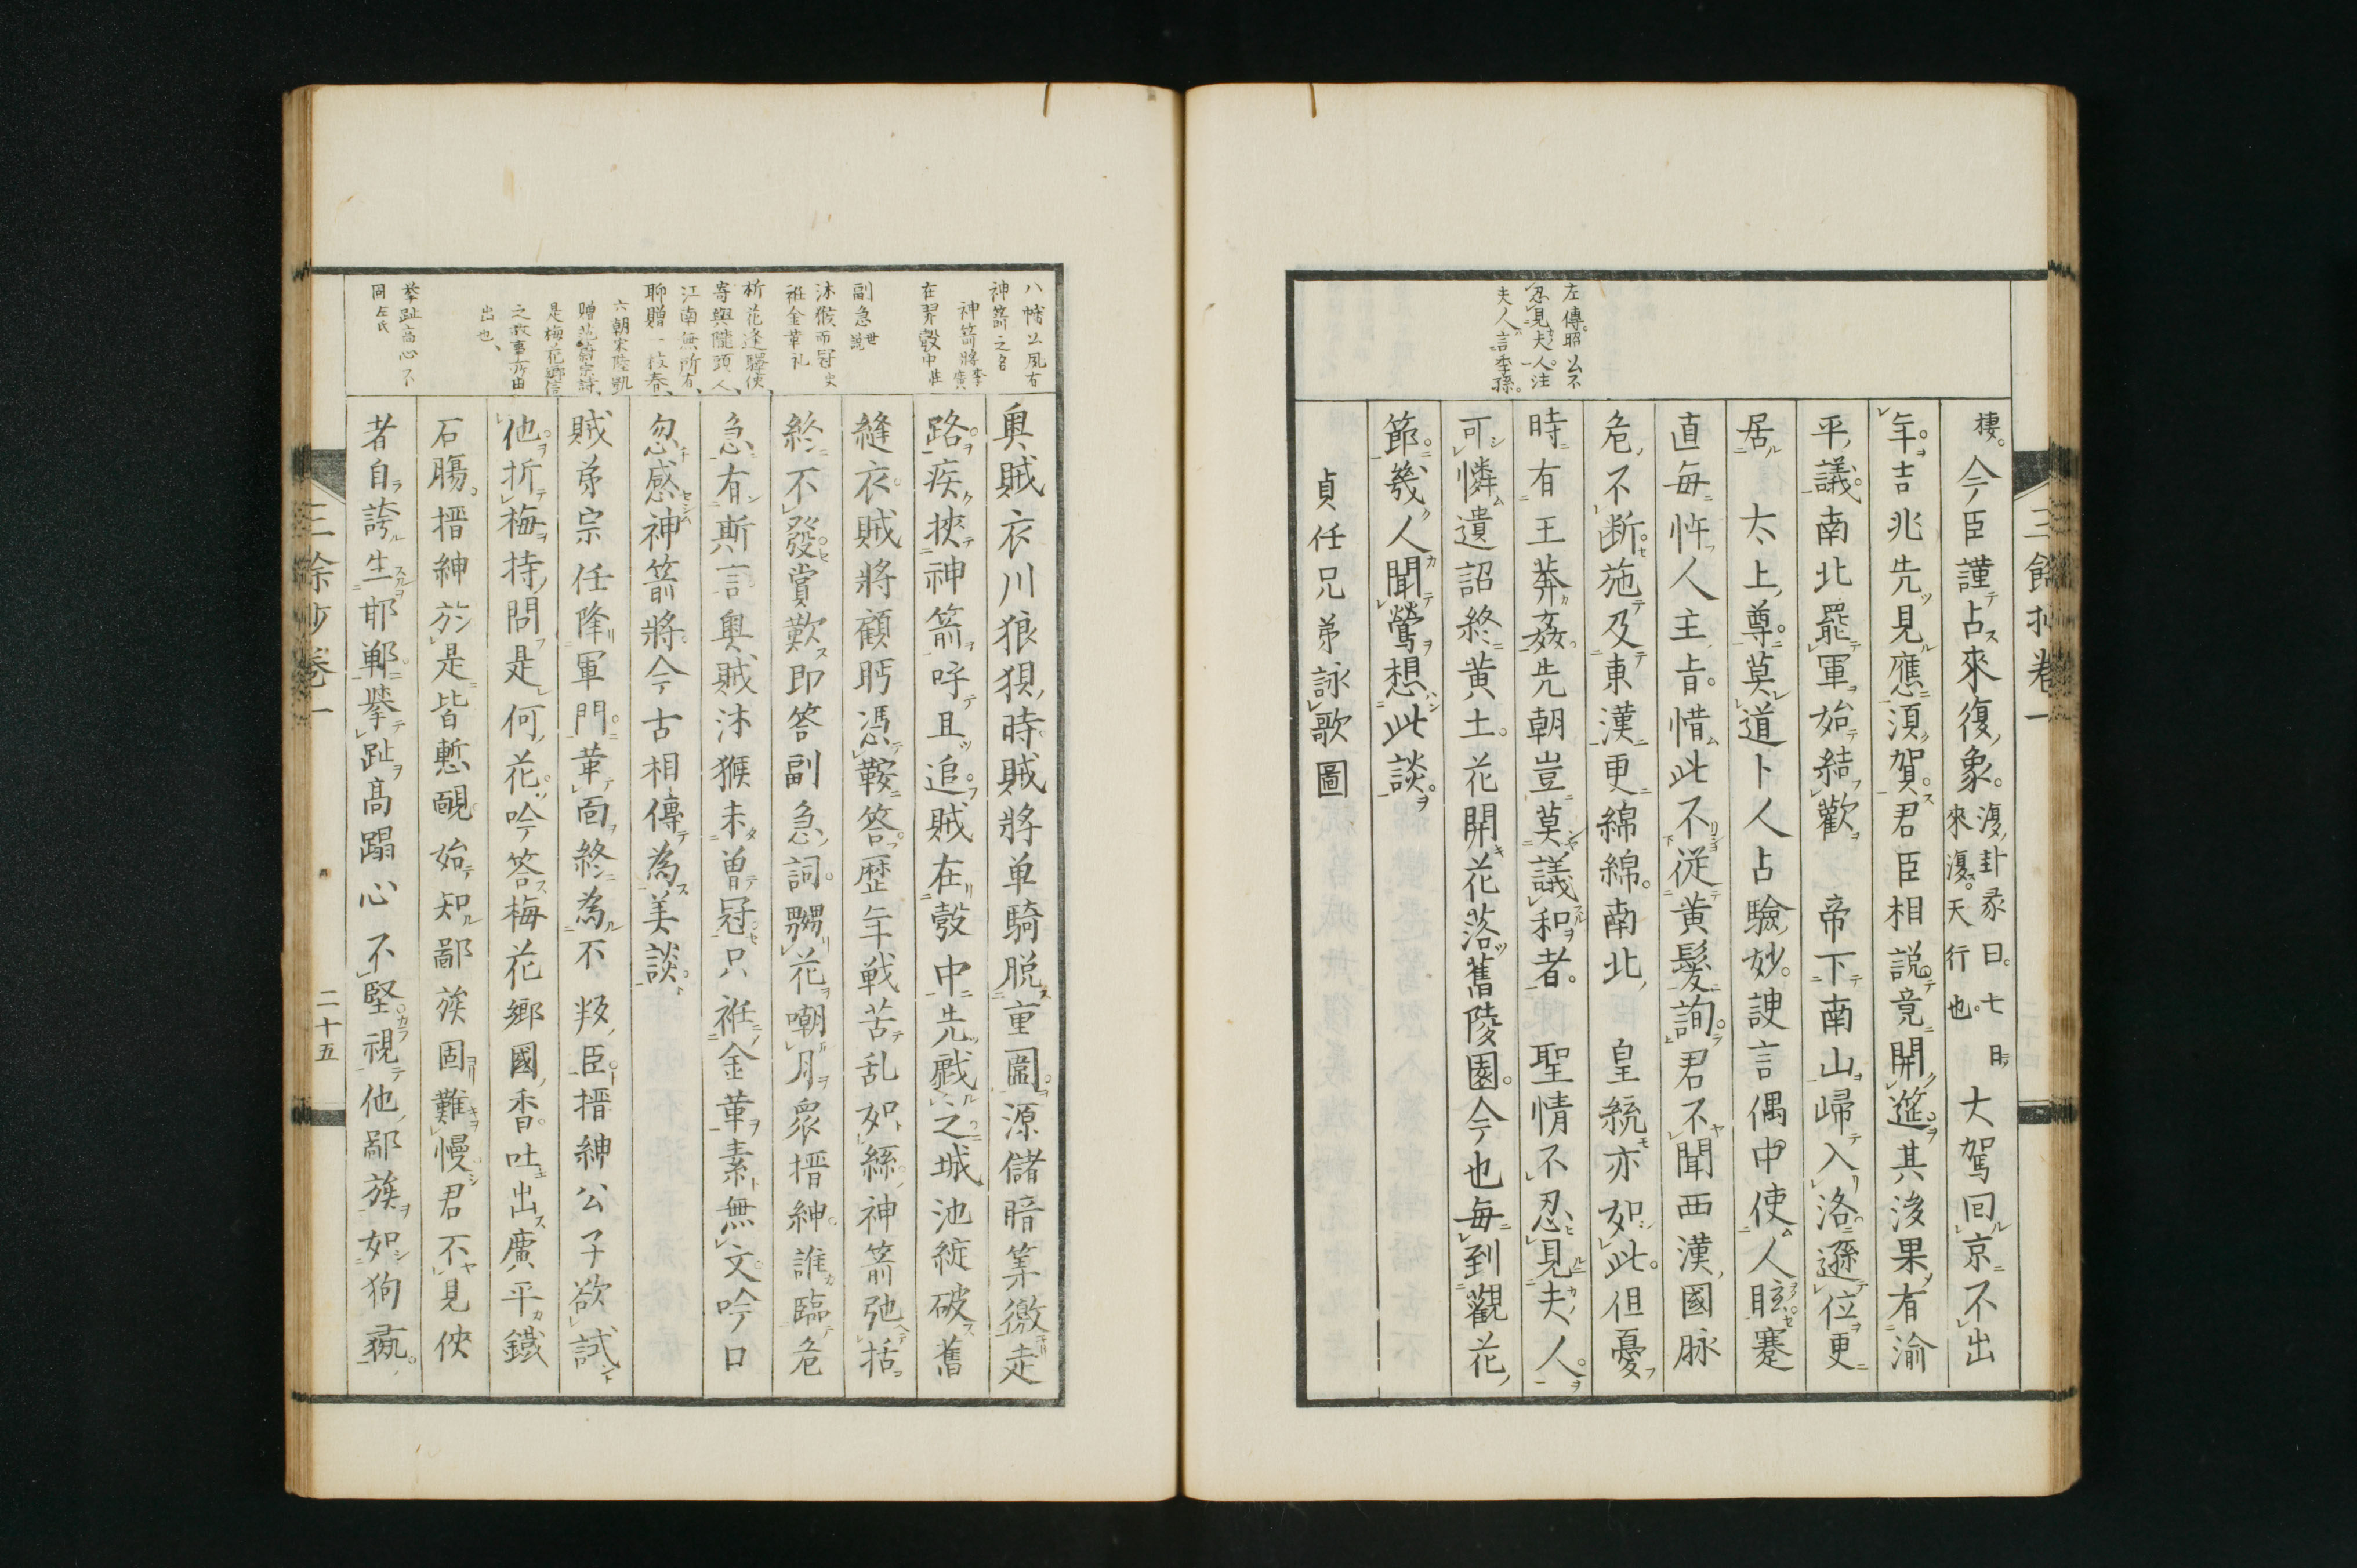 三餘抄卷一
左傳。昭公不
忍見夫人。注
夫人言季孫。
棲。今臣謹占來復象。復卦彖曰。七日來復。天行也。大駕回京不出
年。吉兆先見應須賀。君臣相説竟開筵。其後果有渝
平議。南北罷軍始結歡 帝下南山歸入洛。遜位更
居 太上尊。莫道卜人占驗妙。諛言偶中使人眩。蹇
直每忤人主旨。惜此不從黃髮詢。君不聞西漢國脉
危不断。施及東漢更綿綿。南北 皇統亦如此。但憂
時有王莽姦。先朝豈莫議和者。聖情不忍見夫人。
可憐遺詔終黃土。花開花落舊陵園。今也每到觀花
節。幾人聞鶯想此談。
貞任兄弟詠歌圖
八幡公夙有
神箭之名
神箭將李廣
在羿彀中莊
副急世説
沐猴而冠史
衽金革礼
折花逢驛使、
寄與隴頭人、
江南無所有、
聊贈一枝春、
六朝宋陸凱
贈范蔚宗詩、
是梅花鄉信
之故事所由
出也、
擧趾高心不
同左氏
奥賊衣川狼狽時。賊將单騎脱重圍。源儲暗筭徼走
路。疾挾神箭呼且追。賊在彀中先戲之。城池綻破舊
縫衣。賊將顧眄憑鞍答。歷年戦苦乱如絲。神箭弛括
終不發。賞歎即答副急詞。嬲花嘲月衆搢紳。誰臨危
急有斯言。奥賊沐猴未曾冠。只衽金革素無文。吟口
忽感神箭將。今古相傳為美談。
賊弟宗任降軍門。革面終為不叛臣。搢紳公子欲試
他。折梅持問是何花。吟答梅花鄉國香。吐出廣平鐵
石腸。搢紳於是皆慙靦。始知鄙族固難慢。君不見俠
者自誇生邯鄲。擧趾高蹋心不堅。視他鄙族如狗
三餘抄卷一
二十五